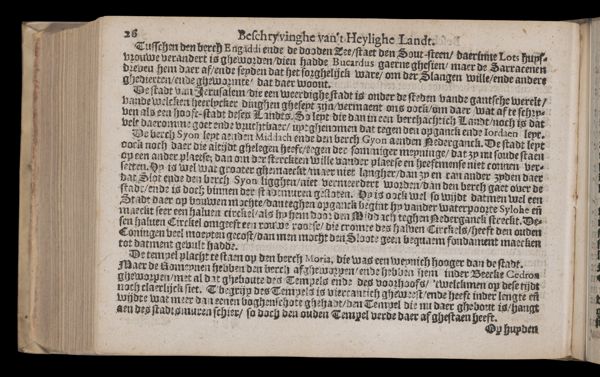 26 Beschryvinghe van't Heylighe Landt.
Tusschen den berch Engaddi ende de dooden Zee/ staet den Sout-steen/ daerinne Lots huys-
vrouwe verandert is gheworden/ dien hadde Bucardus gaerne ghesien/ maer de Sarracenen
dreven hem daer af/ ende seyden dat het sorghelijck ware/ om der Slangen wille/ ende andere
ghedierten/ ende ghewormte/ dat daer woont.
De stadt van Jerusalem/ die een weerdighe stadt is onder de steden vande gantsche werelt/
vande welcken heerlycker dinghen gheseyt zijn/ vermaent ons oock/ om daer wat af te schry-
ven als een hooft-stadt deses Landts. So leyt die dan in een berchachtich Landt/ noch is dat
velt daeromme goet ende vruchtbaer/ uytghenomen dat tegen den opganck ende Iordaen leyt.
De berch Syon leyt aenden Middach ende den berch Gyon aenden Nederganck. De stadt leyt
oock noch daer die altijdt ghelegen heeft/ tegen der sommiger meyninge/ dat zy nu soude staen
op een ander plaetse/ dan om der sterckten wille vander plaetse en heeftmense niet connen ver-
setten. Hy is wel wat grooter ghemaeckt/ maer niet langher/ dan zy en can ander zyden daer
dat Slot ende den berch Syon ligghen/ niet vermeerdert worden/ dan den berch gaet over de
stadt/ ende is doch binnen der stadtmuren gesloten. Hy is oock wel so wijdt datmen wel een
Stadt daer op bouwen mochte/ dan teghen opganck begint hy vander waterpoorte Sylohe eñ
maeckt seer een halven circkel/ als hy hem door den Middach teghen Nederganck streckt. De-
sen halven Circkel omgreeft een rouwe rootse/ die cromte des halven Circkels/ heeft den ouden
Coningen veel moeyten gecost/ dan men mocht den Sloote geen bequaem fondament maecken
tot datment gevult hadde.
De tempel placht te staen op den berch Moria, die was een weynich hooger dan de stadt.
Maer de Romeynen hebben den berch afgheworpen/ ende hebben hem inder Beecke Cedron
gheworpen/ met al dat ghehoute des Tempels ende des voorhoofs/ 'twelckmen op dese tijdt
noch claerlijck siet. T'begrijp des Tempels is viercantich gheweest/ ende heeft inder lengte eñ
wijdte wat meer dan eenen boghenschote ghehadt/ den Tempel die nu daer ghebout is/ hangt
aen des stadtsmuren schier/ so doch den ouden Tempel verde daer af ghestaen heeft.
Op huyden